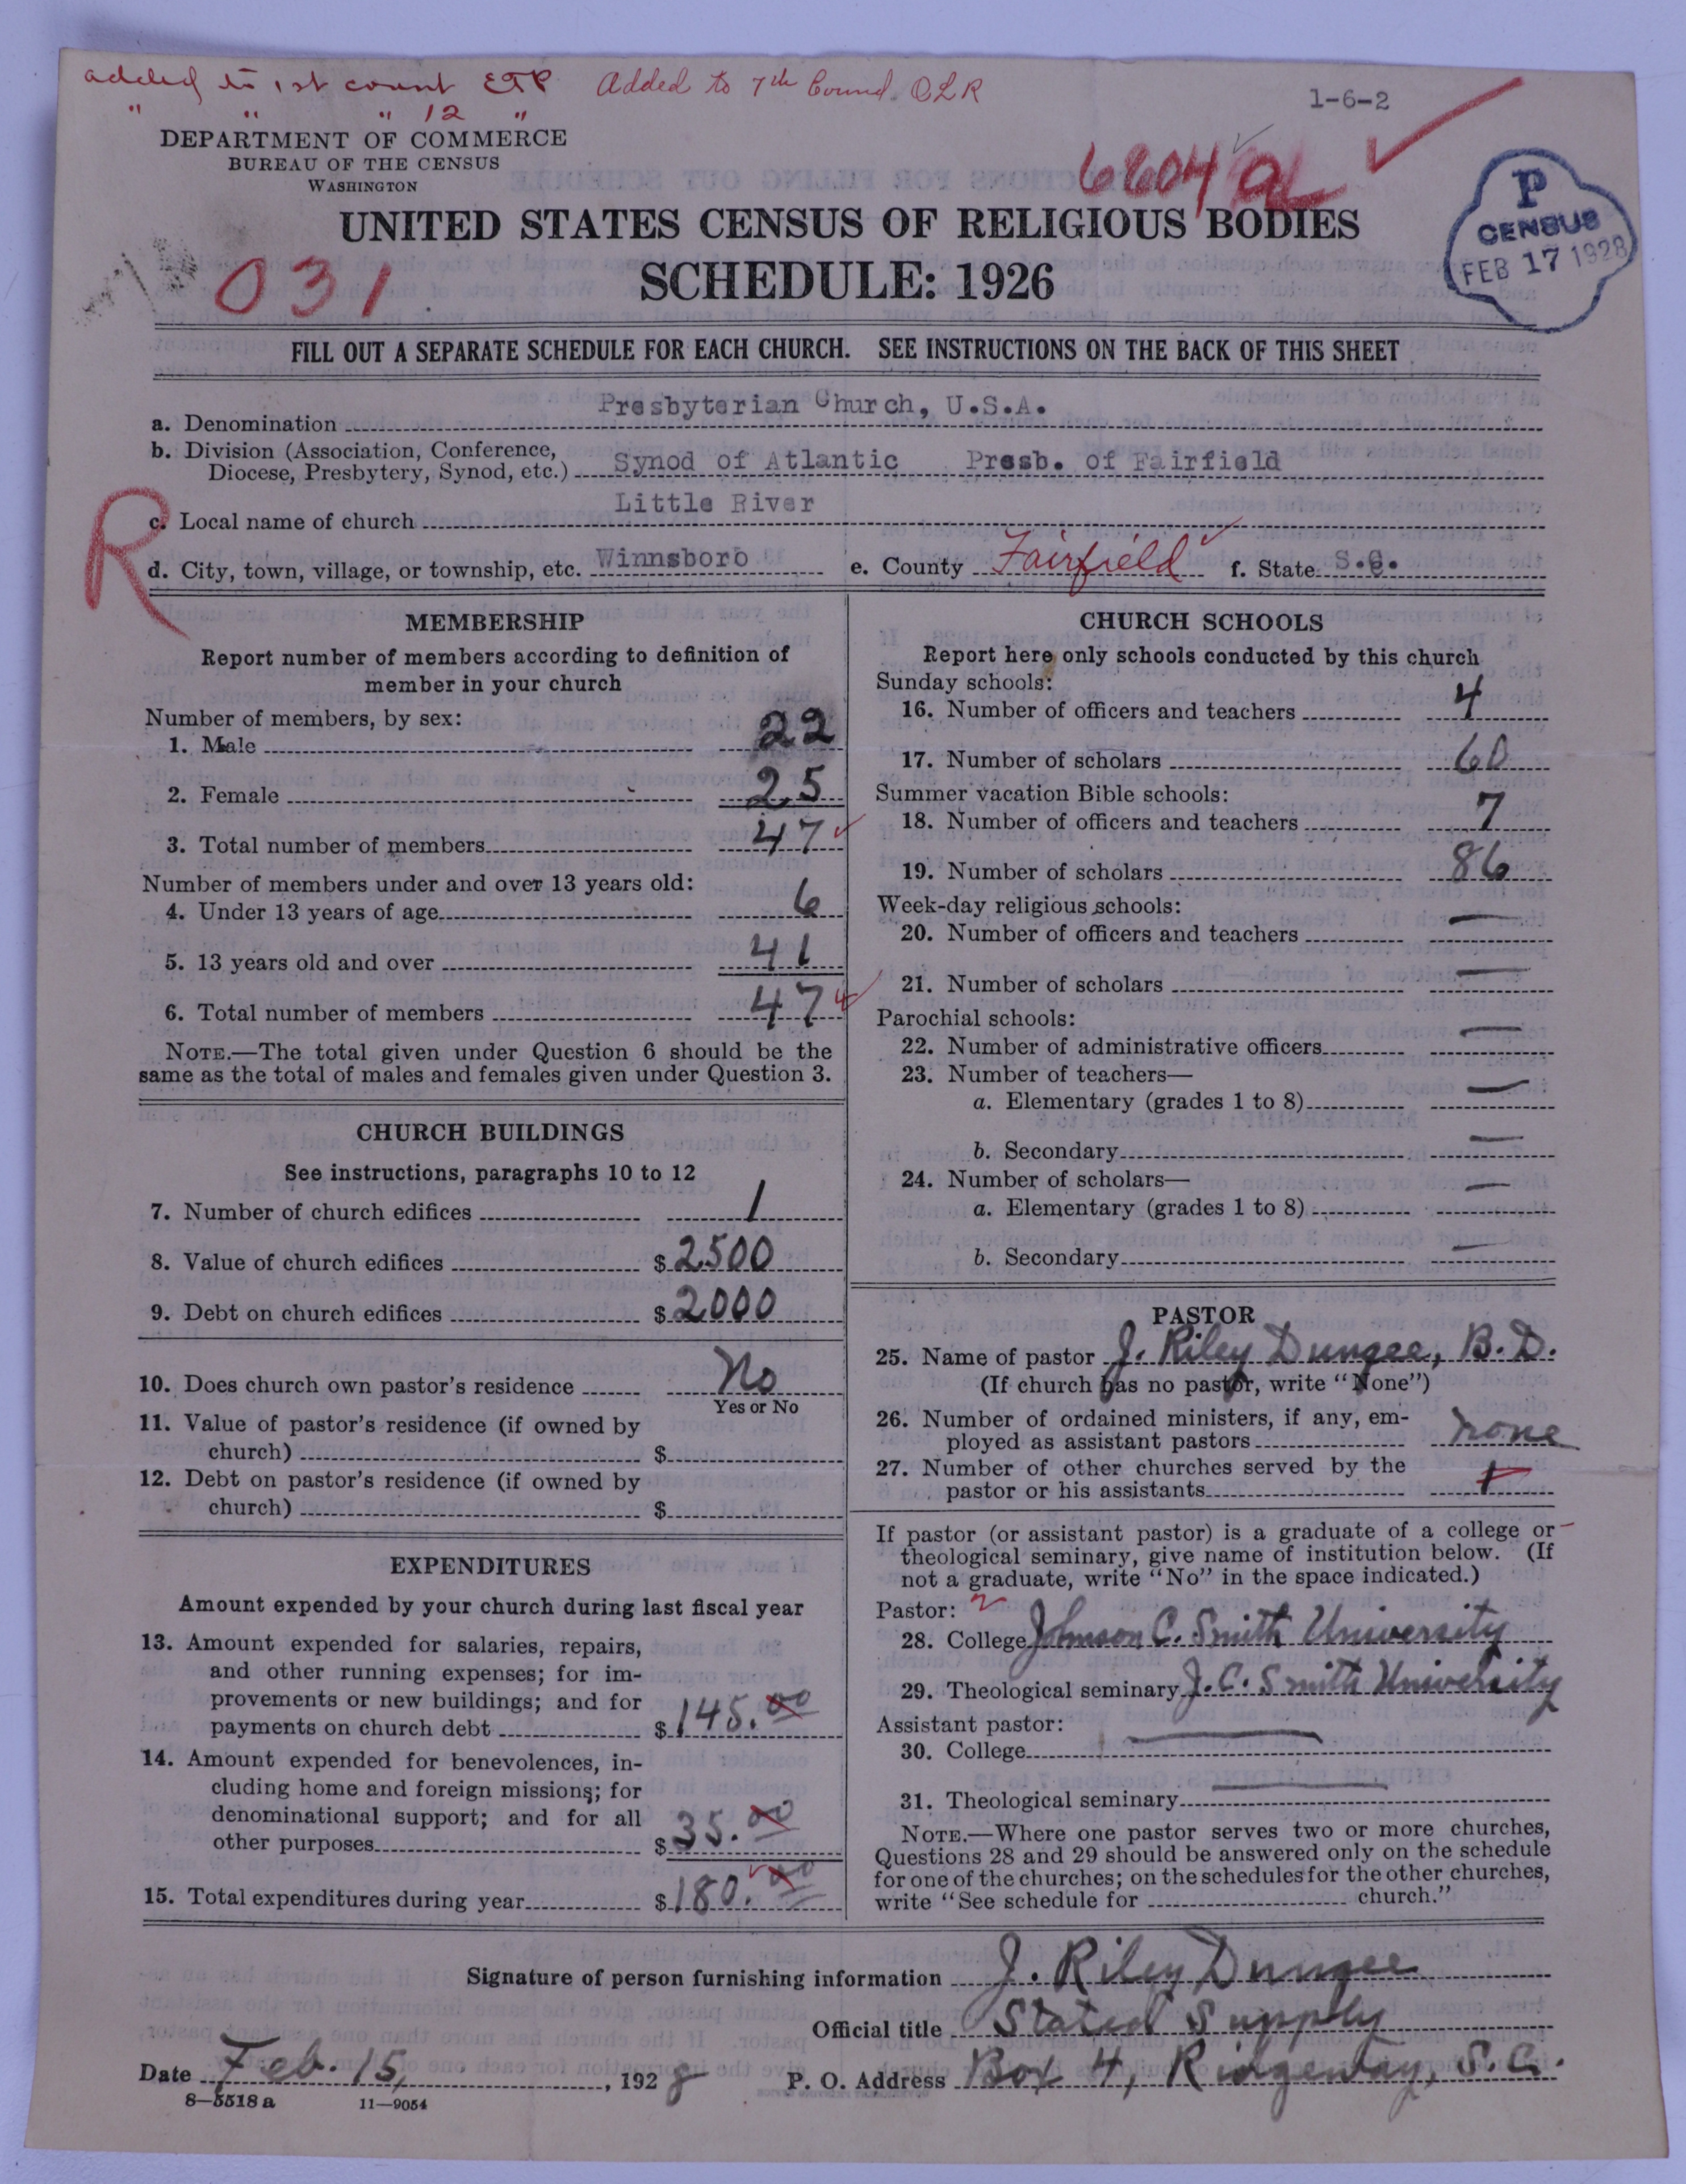 added to 1st count ETP Added to 7th Count. OLR
" " " 12 "
1-6-2
DEPARTMENT OF COMMERCE
BUREAU OF THE CENSUS
WASHINGTON
6604
UNITED STATES CENSUS OF RELIGIOUS BODIES
SCHEDULE: 1926
031
P
CENSUS
FEB 17 1928
FILL OUT A SEPARATE SCHEDULE FOR EACH CHURCH. SEE INSTRUCTIONS ON THE BACK OF THIS SHEET
a. Denomination Presbyterian Church, U.S.A.
b. Division (Association, Conference,
Diocese, Presbytery, Synod, etc.) Synod of Atlantic Presb. of Fairfield
R
c. Local name of church Little River
d. City, town, village, or township, etc. Winnsboro e. County Fairfield f. State S.C.
MEMBERSHIP
Report number of members according to definition of
member in your church
Number of members, by sex:
1. Male 22
2. Female 25
3. Total number of members 47
Number of members under and over 13 years old:
4. Under 13 years of age 6
5. 13 years old and over 41
6. Total number of members 47
NOTE.—The total given under Question 6 should be the
same as the total of males and females given under Question 3.
CHURCH BUILDINGS
See instructions, paragraphs 10 to 12
7. Number of church edifices 1
8. Value of church edifices $ 2500
9. Debt on church edifices $ 2000
10. Does church own pastor's residence No
Yes or No
11. Value of pastor's residence (if owned by
church) $
12. Debt on pastor's residence (if owned by
church) $
EXPENDITURES
Amount expended by your church during last fiscal year
13. Amount expended for salaries, repairs,
and other running expenses; for im-
provements or new buildings; and for
payments on church debt $ 145.00
14. Amount expended for benevolences, in-
cluding home and foreign missions; for
denominational support; and for all
other purposes $ 35.00
15. Total expenditures during year $ 180.00
CHURCH SCHOOLS
Report here only schools conducted by this church
Sunday schools:
16. Number of officers and teachers 4
17. Number of scholars 60
Summer vacation Bible schools:
18. Number of officers and teachers 7
19. Number of scholars 86
Week-day religious schools:
20. Number of officers and teachers —
21. Number of scholars —
Parochial schools:
22. Number of administrative officers —
23. Number of teachers—
a. Elementary (grades 1 to 8) —
b. Secondary —
24. Number of scholars—
a. Elementary (grades 1 to 8) —
b. Secondary —
PASTOR
25. Name of pastor J. Riley Dungee, B.D.
(If church has no pastor, write "None")
26. Number of ordained ministers, if any, em-
ployed as assistant pastors none
27. Number of other churches served by the
pastor or his assistants 1
If pastor (or assistant pastor) is a graduate of a college or
theological seminary, give name of institution below. (If
not a graduate, write "No" in the space indicated.)
Pastor: 2
28. College Johnson C. Smith University
29. Theological seminary J. C. Smith University
Assistant pastor:
30. College —
31. Theological seminary —
NOTE.—Where one pastor serves two or more churches,
Questions 28 and 29 should be answered only on the schedule
for one of the churches; on the schedules for the other churches,
write "See schedule for church."
Signature of person furnishing information J. Riley Dungee
Official title Stated Supply
Date Feb. 15, 1928 P. O. Address Box 4, Ridgeway, S.C.
8—5518 a 11—9054